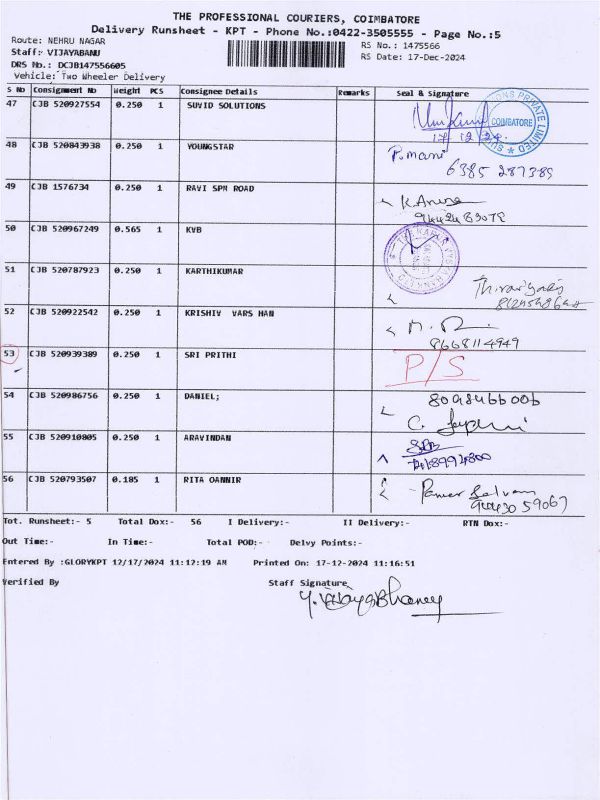 THE PROFESSIONAL COURIERS, COIMBATORE
Delivery Runsheet - KPT - Phone No.:0422-3505555 - Page No.:5
Route: NEHRU NAGAR
RS No.: 1475566
Staff: VIJAYABANU
RS Date: 17-Dec-2024
DRS No.: DCJB147556605
Vehicle: Two Wheeler Delivery
S No Consignment No Weight PCS Consignee Details Remarks Seal & Signature
47 CJB 520927554 0.250 1 SUVID SOLUTIONS
COIMBATORE
17 12 24
48 CJB 520843938 0.250 1 YOUNGSTAR P. mani
6385 287389
49 CJB 1576734 0.250 1 RAVI SPM ROAD
50 CJB 520967249 0.565 1 KVB
51 CJB 520787923 0.250 1 KARTHIKUMAR
52 CJB 520922542 0.250 1 KRISHIV VARS HAN
8668114949
53 CJB 520939389 0.250 1 SRI PRITHI P/S
54 CJB 520986756 0.250 1 DANIEL;
55 CJB 520910805 0.250 1 ARAVINDAN
56 CJB 520793507 0.185 1 RITA OANNIR
94430 59067
Tot. Runsheet:- 5 Total Dox:- 56 I Delivery:- II Delivery:- RTN Dox:-
Out Time:- In Time:- Total POD:- Delvy Points:-
Entered By :GLORYKPT 12/17/2024 11:12:19 AM Printed On: 17-12-2024 11:16:51
Verified By Staff Signature